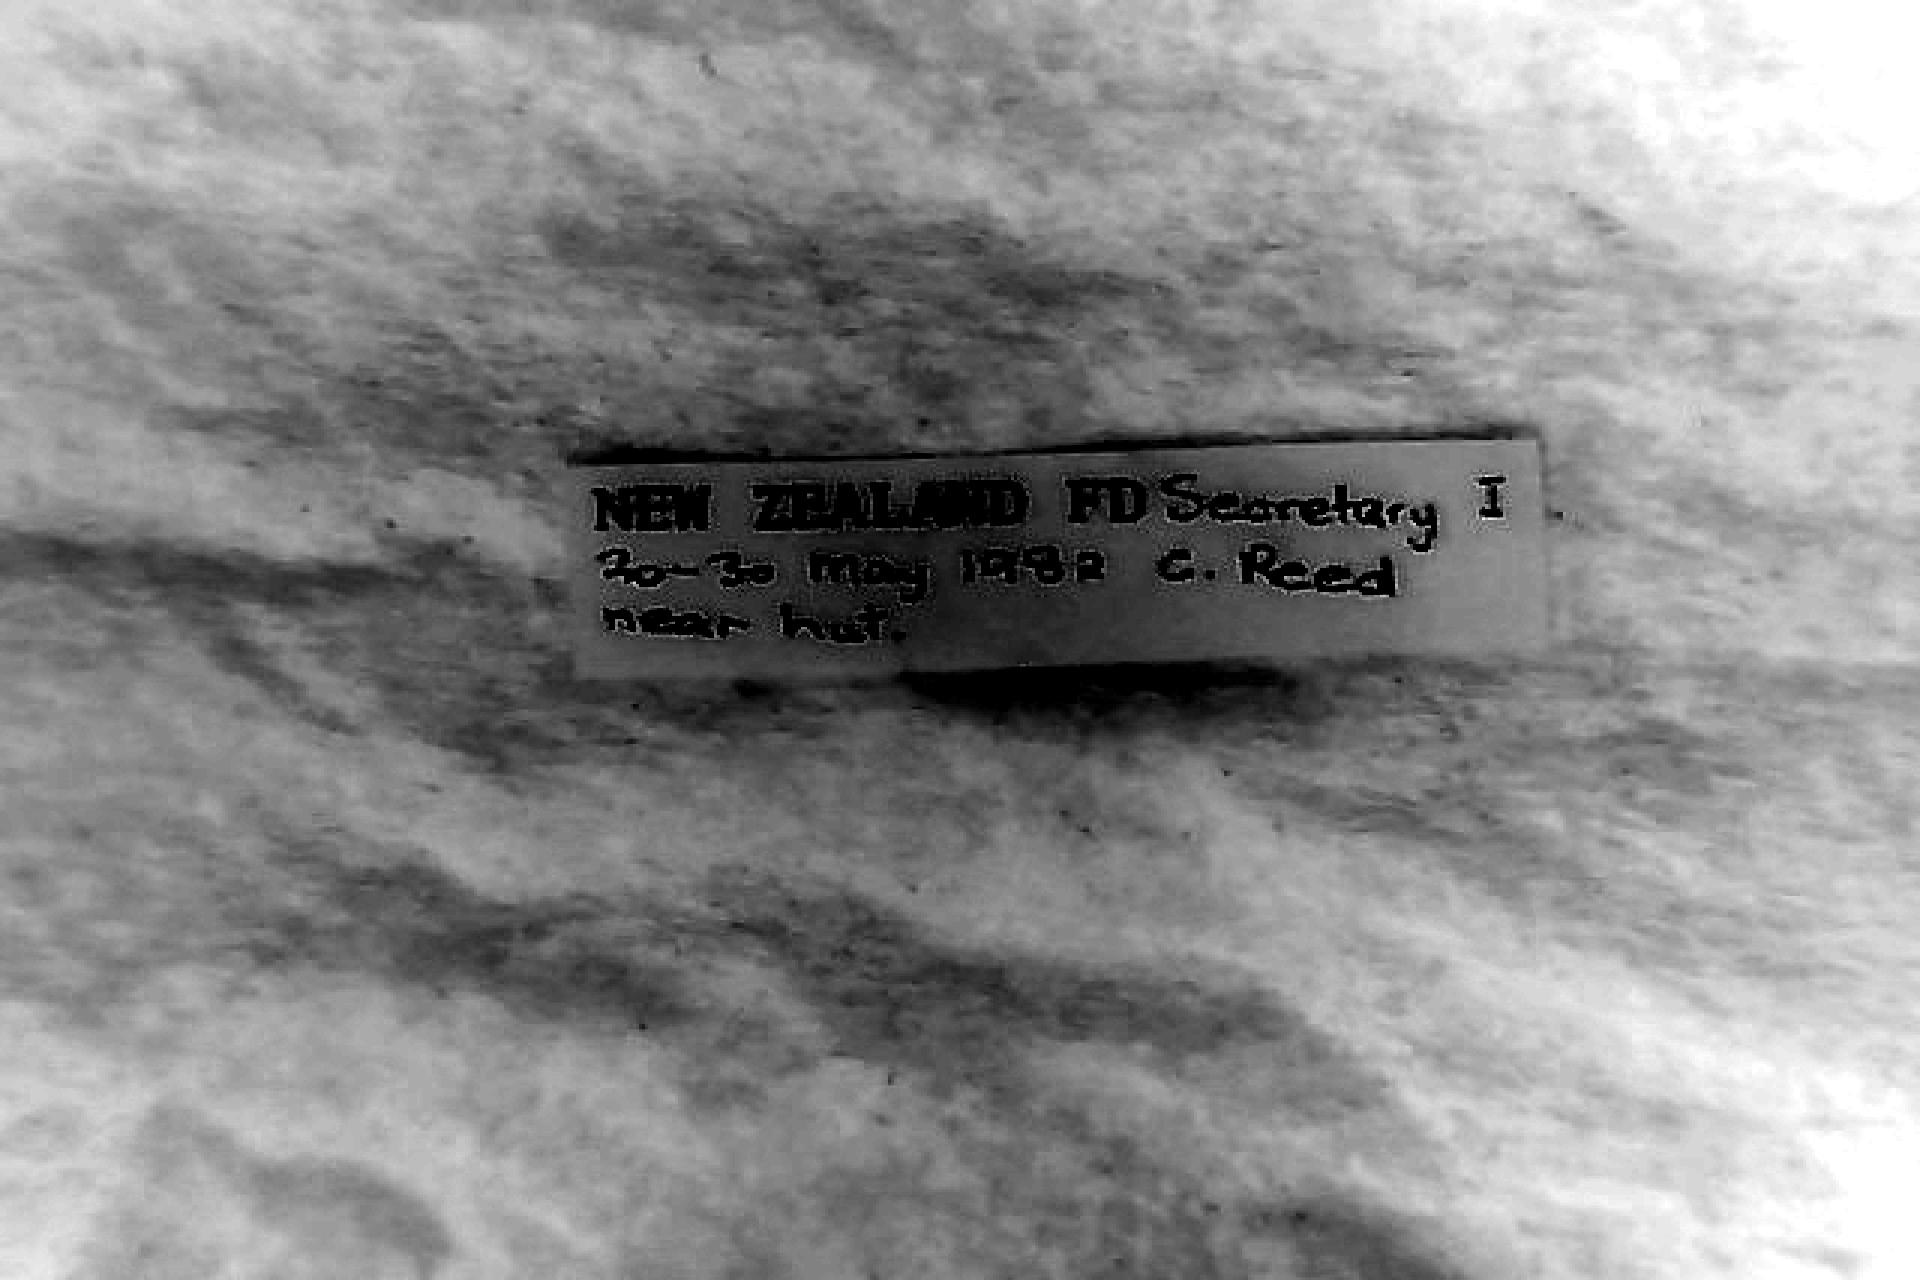 NEW ZEALAND FD Secretary I
20-30 may 1982 C. Reed
near hut.